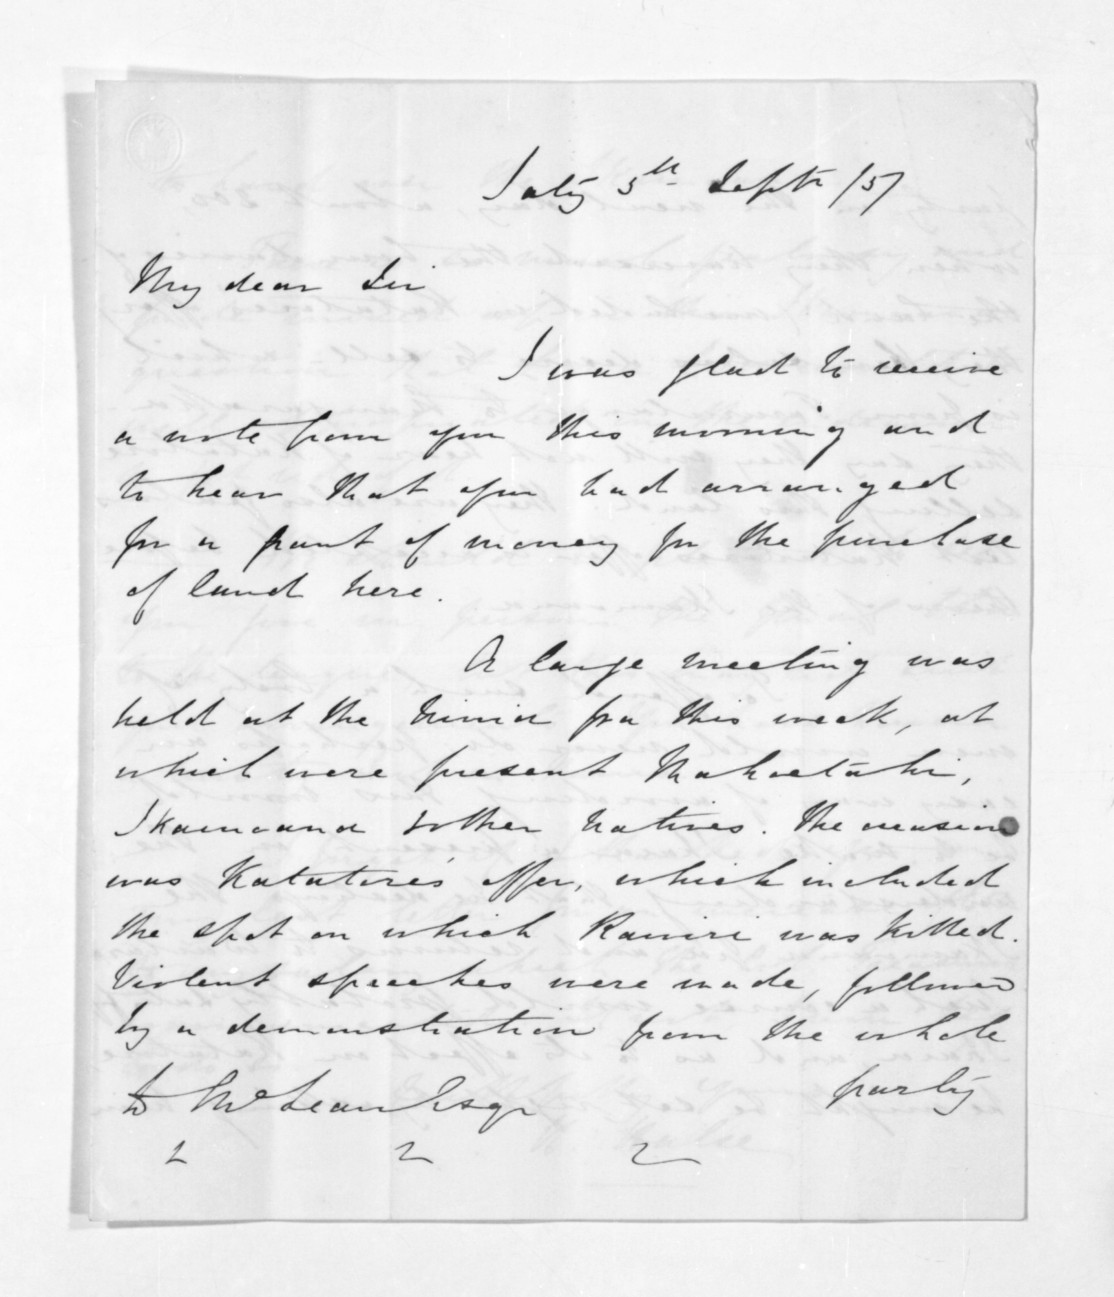 Saty 5th Septr /57
My dear Sir
I was glad to receive
a note from you this morning and
to hear that you had arranged
for a grant of money for the purchase
of land here.
A large meeting was
held at the Ninia pa this week, at
which were present Mahoetahi,
Ikamoana & other natives. The occasion
was Katatore's offer, which included
the spot on which Rawiri was killed.
Violent speeches were made, followed
by a demonstration from the whole
party
D McLean Esqr